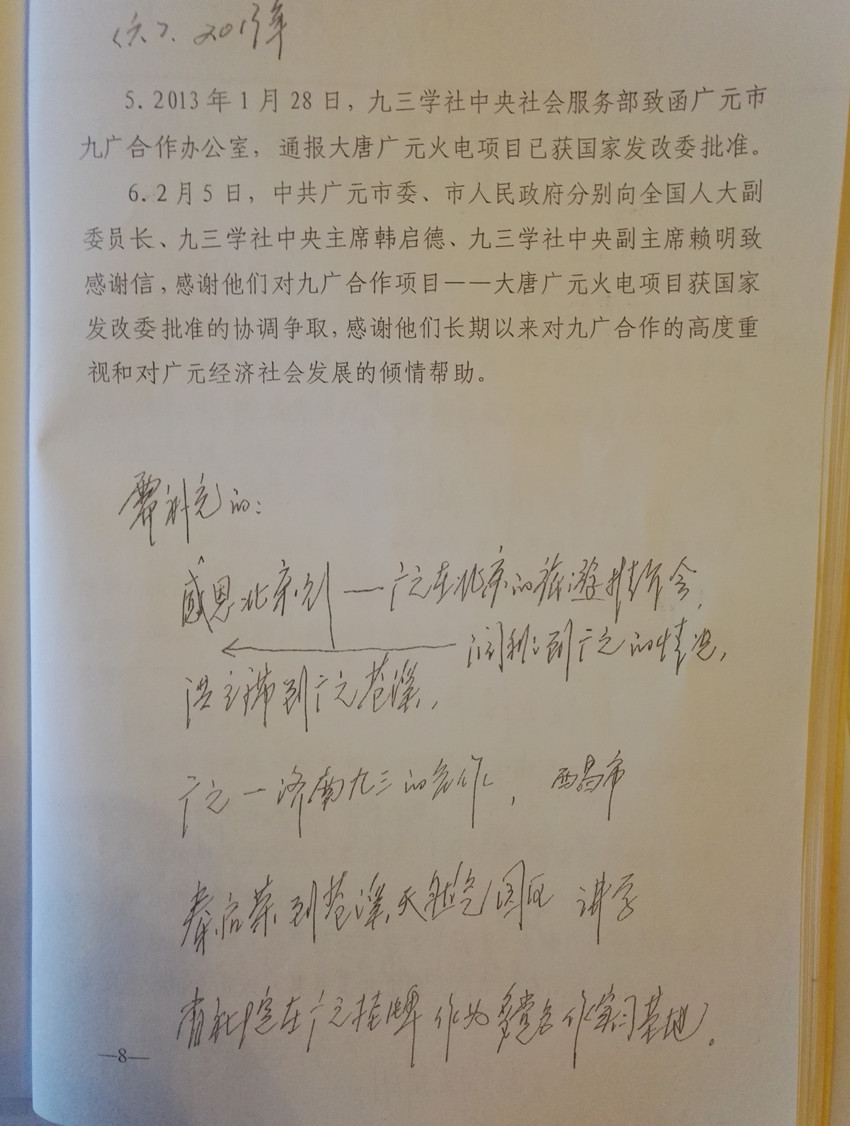 2013年
5. 2013年1月28日，九三学社中央社会服务部致函广元市
九广合作办公室，通报大唐广元火电项目已获国家发改委批准。
6. 2月5日，中共广元市委、市人民政府分别向全国人大副
委员长、九三学社中央主席韩启德、九三学社中央副主席赖明致
感谢信，感谢他们对九广合作项目——大唐广元火电项目获国家
发改委批准的协调争取，感谢他们长期以来对九广合作的高度重
视和对广元经济社会发展的倾情帮助。
需补充的：
感恩北京行——广元在北京的旅游推介会，
到广元的情况，
洪主席到广元苍溪，
广元—济南九三的合作，西昌市
秦启荣到苍溪天然气园区 讲学
省社院在广元挂牌 作为多党合作实习基地。
—8—